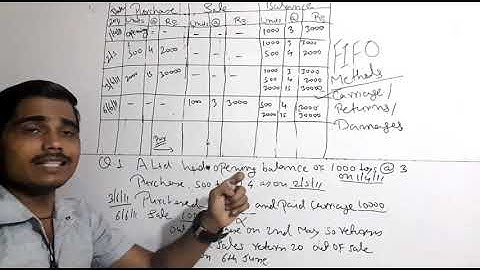 Purchase Sale Balance
units @ Rs. units @ Rs. units @ Rs
opening - - - - - 1000 3 3000
2/5 500 4 2000 - - - 1000 3 3000
500 4 2000
2000 15 30000 - - - 1000 3 3000
500 4 2000
2000 15 30000
6/6/11 - - - 1000 3 3000 500 4 2000
2000 15 30000
FIFO
Methods
Carriage/
Returns/
Damages
Q.1 A Ltd had opening balance of 1000 @ 3
on 1/4/11
Purchase 500 4 as on 2/5/11
3/6/11 Purchased and paid carriage 10000
6/6/11 Sale
out on 2nd May 50 returns
Sales return 20 out of sale
on 6th June